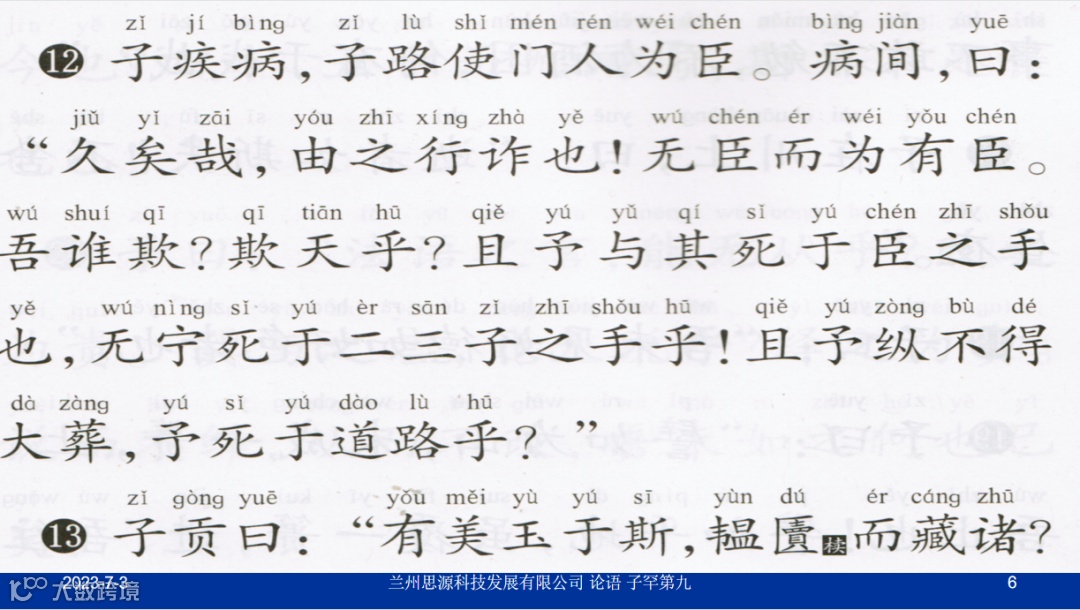 zǐ jí bìng zǐ lù shǐ mén rén wéi chén bìng jiàn yuē
⑫子疾病，子路使门人为臣。病间，曰：
jiǔ yǐ zāi yóu zhī xíng zhà yě wú chén ér wéi yǒu chén
“久矣哉，由之行诈也！无臣而为有臣。
wú shuí qī qī tiān hū qiě yú yǔ qí sǐ yú chén zhī shǒu
吾谁欺？欺天乎？且予与其死于臣之手
yě wú nìng sǐ yú èr sān zǐ zhī shǒu hū qiě yú zòng bù dé
也，无宁死于二三子之手乎！且予纵不得
dà zàng yú sǐ yú dào lù hū
大葬，予死于道路乎？”
zǐ gòng yuē yǒu měi yù yú sī yùn dú ér cáng zhū
⑬子贡曰：“有美玉于斯，韫匮而藏诸？
大数跨境
2023-7-3
兰州思源科技发展有限公司 论语 子罕第九
6